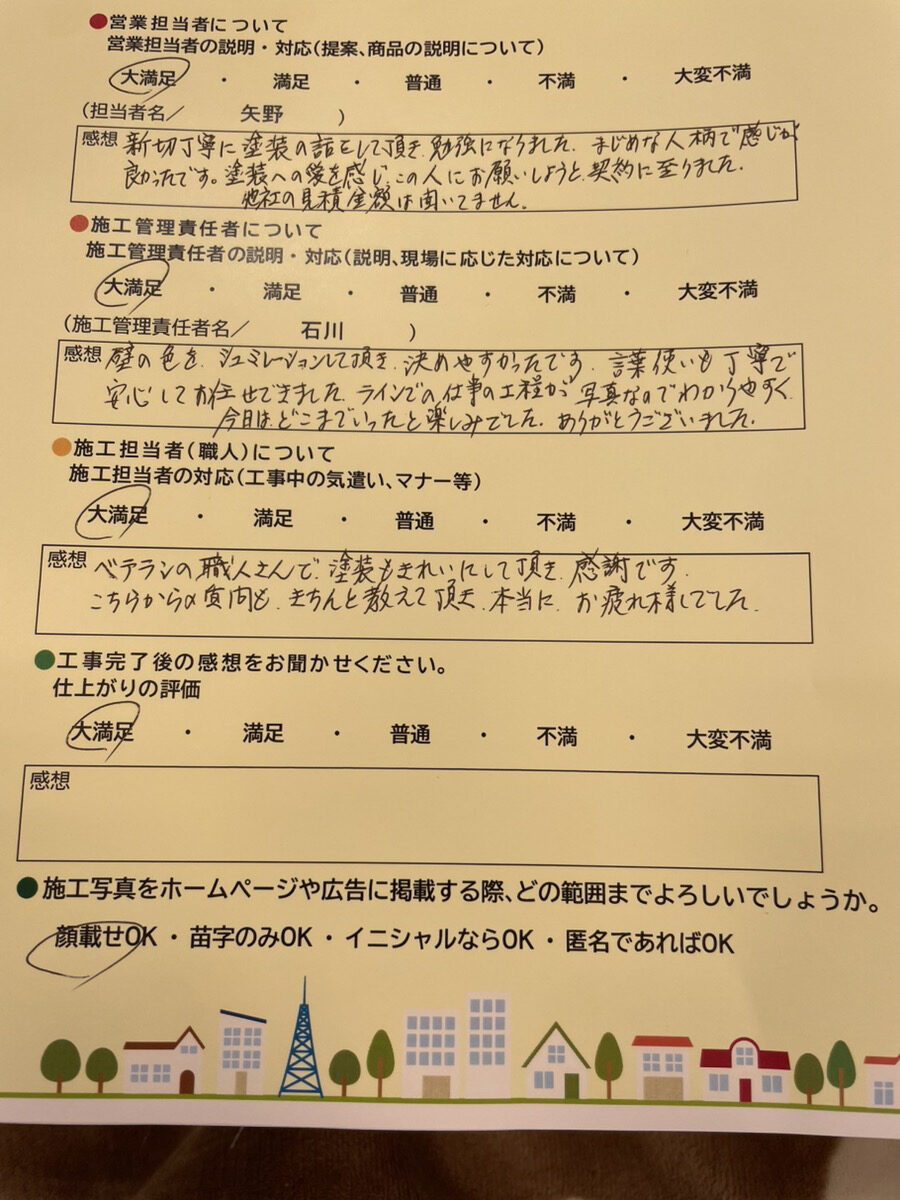 ●営業担当者について
営業担当者の説明・対応(提案、商品の説明について)
大満足 ・ 満足 ・ 普通 ・ 不満 ・ 大変不満
(担当者名/ 矢野 )
感想 新切丁寧に塗装の話をして頂き、勉強になりました。まじめな人柄で感じが
良かったです。塗装への愛を感じ、この人にお願いしようと、契約に至りました。
他社の見積金額は聞いてません。
●施工管理責任者について
施工管理責任者の説明・対応(説明、現場に応じた対応について)
大満足 ・ 満足 ・ 普通 ・ 不満 ・ 大変不満
(施工管理責任者名/ 石川 )
感想 壁の色を、シュミレーションして頂き、決めやすかったです。言葉使いも丁寧で
安心してお任せできました。ラインでの仕事の工程が写真なのでわかりやすく、
今日はどこまでいったと楽しみでした。ありがとうございました。
●施工担当者(職人)について
施工担当者の対応(工事中の気遣い、マナー等)
大満足 ・ 満足 ・ 普通 ・ 不満 ・ 大変不満
感想 ベテランの職人さんで、塗装もきれいにして頂き、感謝です。
こちらからの質問も、きちんと教えて頂き、本当に、お疲れ様でした。
●工事完了後の感想をお聞かせください。
仕上がりの評価
大満足 ・ 満足 ・ 普通 ・ 不満 ・ 大変不満
感想
●施工写真をホームページや広告に掲載する際、どの範囲までよろしいでしょうか。
顔載せOK ・ 苗字のみOK ・ イニシャルならOK ・ 匿名であればOK